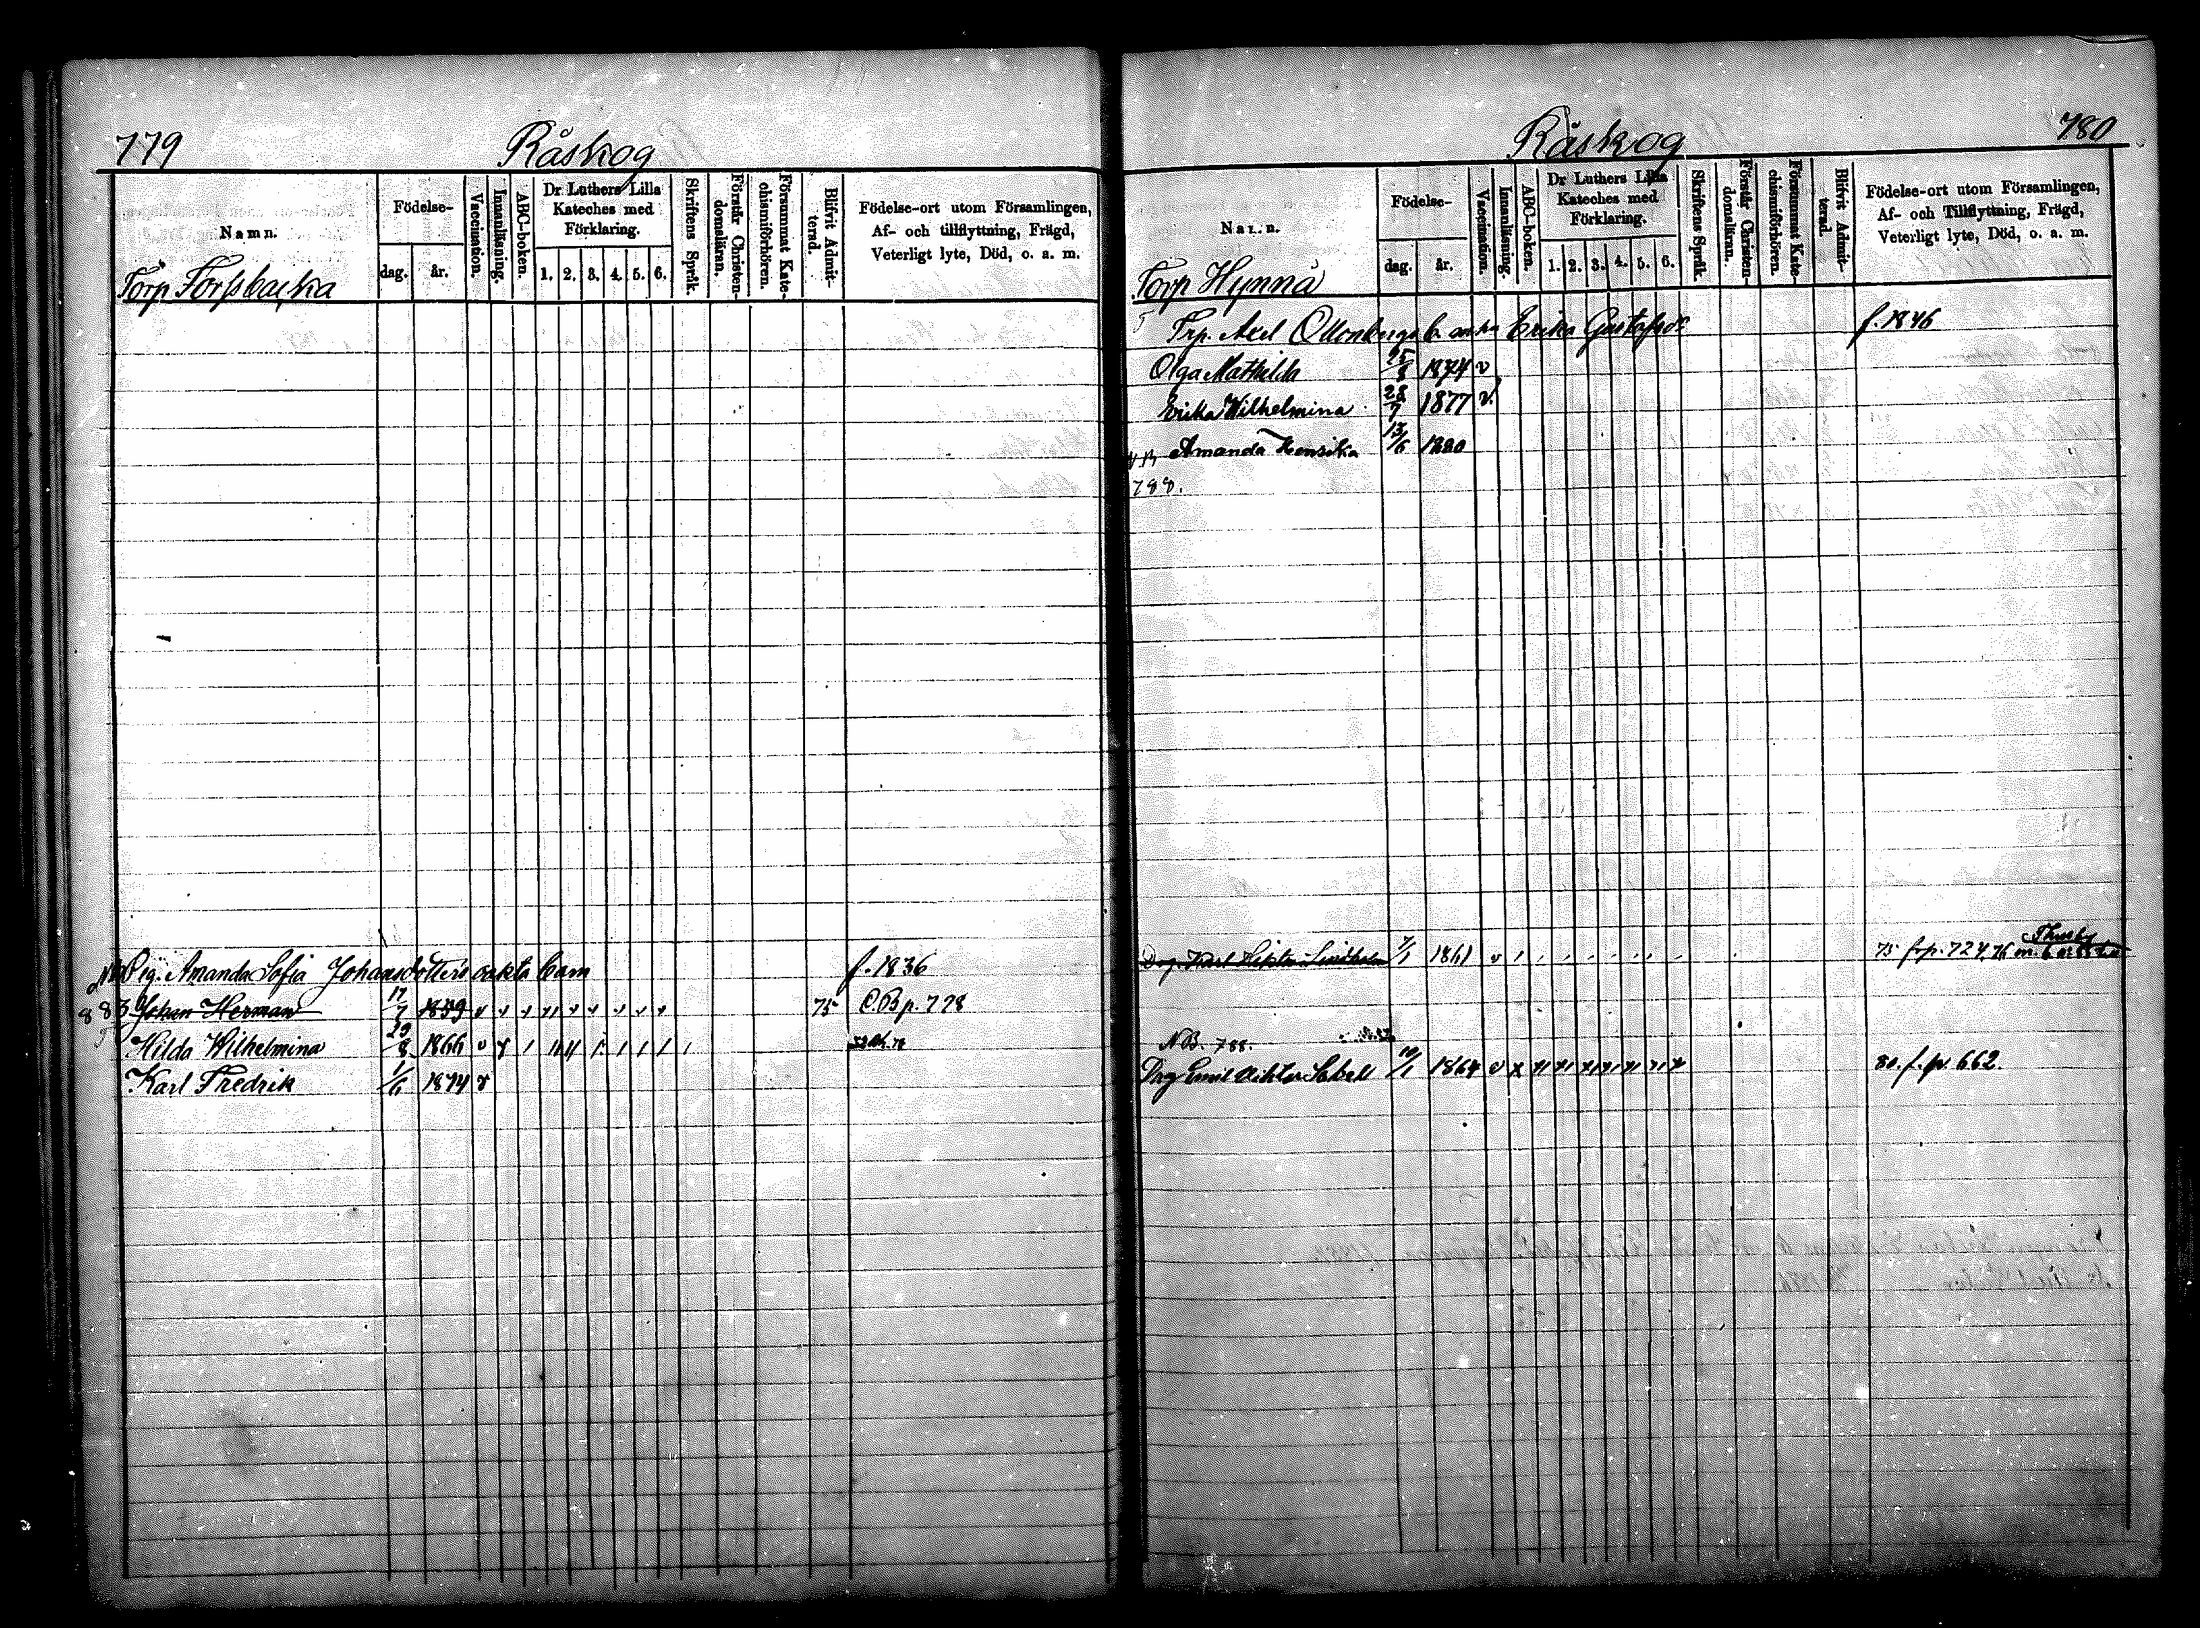 779
Råskog
Namn.
Födelse-
dag.
år.
Vaccination.
Innanläsning.
ABC-boken.
Dr Luthers Lilla
Kateches med
Förklaring.
1. 2. 3. 4. 5. 6.
Skriftens Språk.
Förstår Christen-
domsläran.
Försummat Kate-
chismiförhören.
Blifvit Admit-
terad.
Födelse-ort utom Församlingen,
Af- och tillflyttning, Frägd,
Veterligt lyte, Död, o. a. m.
Torp Forssbacka
Pig. Amanda Sofia Johansdotters oäkta barn f. 1836
883 Johan Herman 17/7 1859 v v v v v v v v v 75 C.B. p. 778
Hilda Wilhelmina 29/8 1866 v
Karl Fredrik 1/6 1874 v
780
Råskog
Namn.
Födelse-
dag.
år.
Vaccination.
Innanläsning.
ABC-boken.
Dr Luthers Lilla
Kateches med
Förklaring.
1. 2. 3. 4. 5. 6.
Skriftens Språk.
Förstår Christen-
domsläran.
Försummat Kate-
chismiförhören.
Blifvit Admit-
terad.
Födelse-ort utom Församlingen,
Af- och Tillflyttning, Frägd,
Veterligt lyte, Död, o. a. m.
Torp Hynnä
Trp. Axel b. Erika Gustafsdr f. 1846
Olga Mathilda 25/8 1874 v
Erika Wilhelmina 28/7 1877 v
N.B. Amanda 13/6 1880
788.
Thusby
Drg. Karl Lindholm 7/1 1861 v 75 f. p. 724, 76 m.
N.B. 788.
Drg Emil Viktor 10/1 1864 v x 80. f. p. 662.